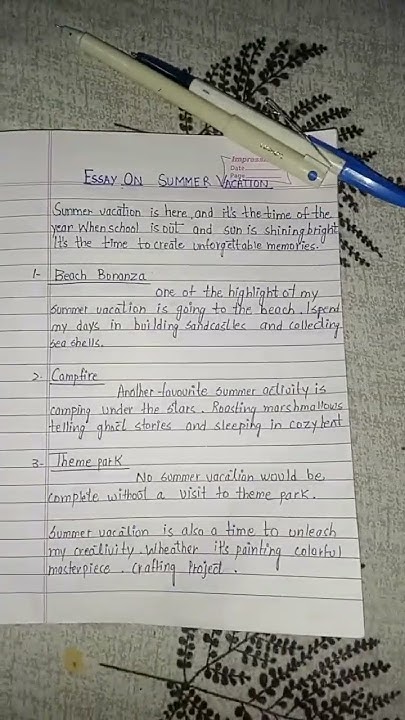 Impress
Date
Page
ESSAY ON SUMMER VACATION
Summer vacation is here, and it's the time of the
year When school is out and sun is shining bright
It's the time to create unforgettable memories.
1- Beach Bonanza
one of the highlight of my
summer vacation is going to the beach. I spend
my days in building sandcastles and collecting
sea shells.
2- Campfire
Another favourite summer activity is
camping under the stars. Roasting marshmallows
telling ghost stories and sleeping in cozy tent
3- Theme park
No summer vacation would be
complete without a visit to theme park.
Summer vacation is also a time to unleash
my creativity. Wheather it's painting colorful
masterpiece. Crafting Project.